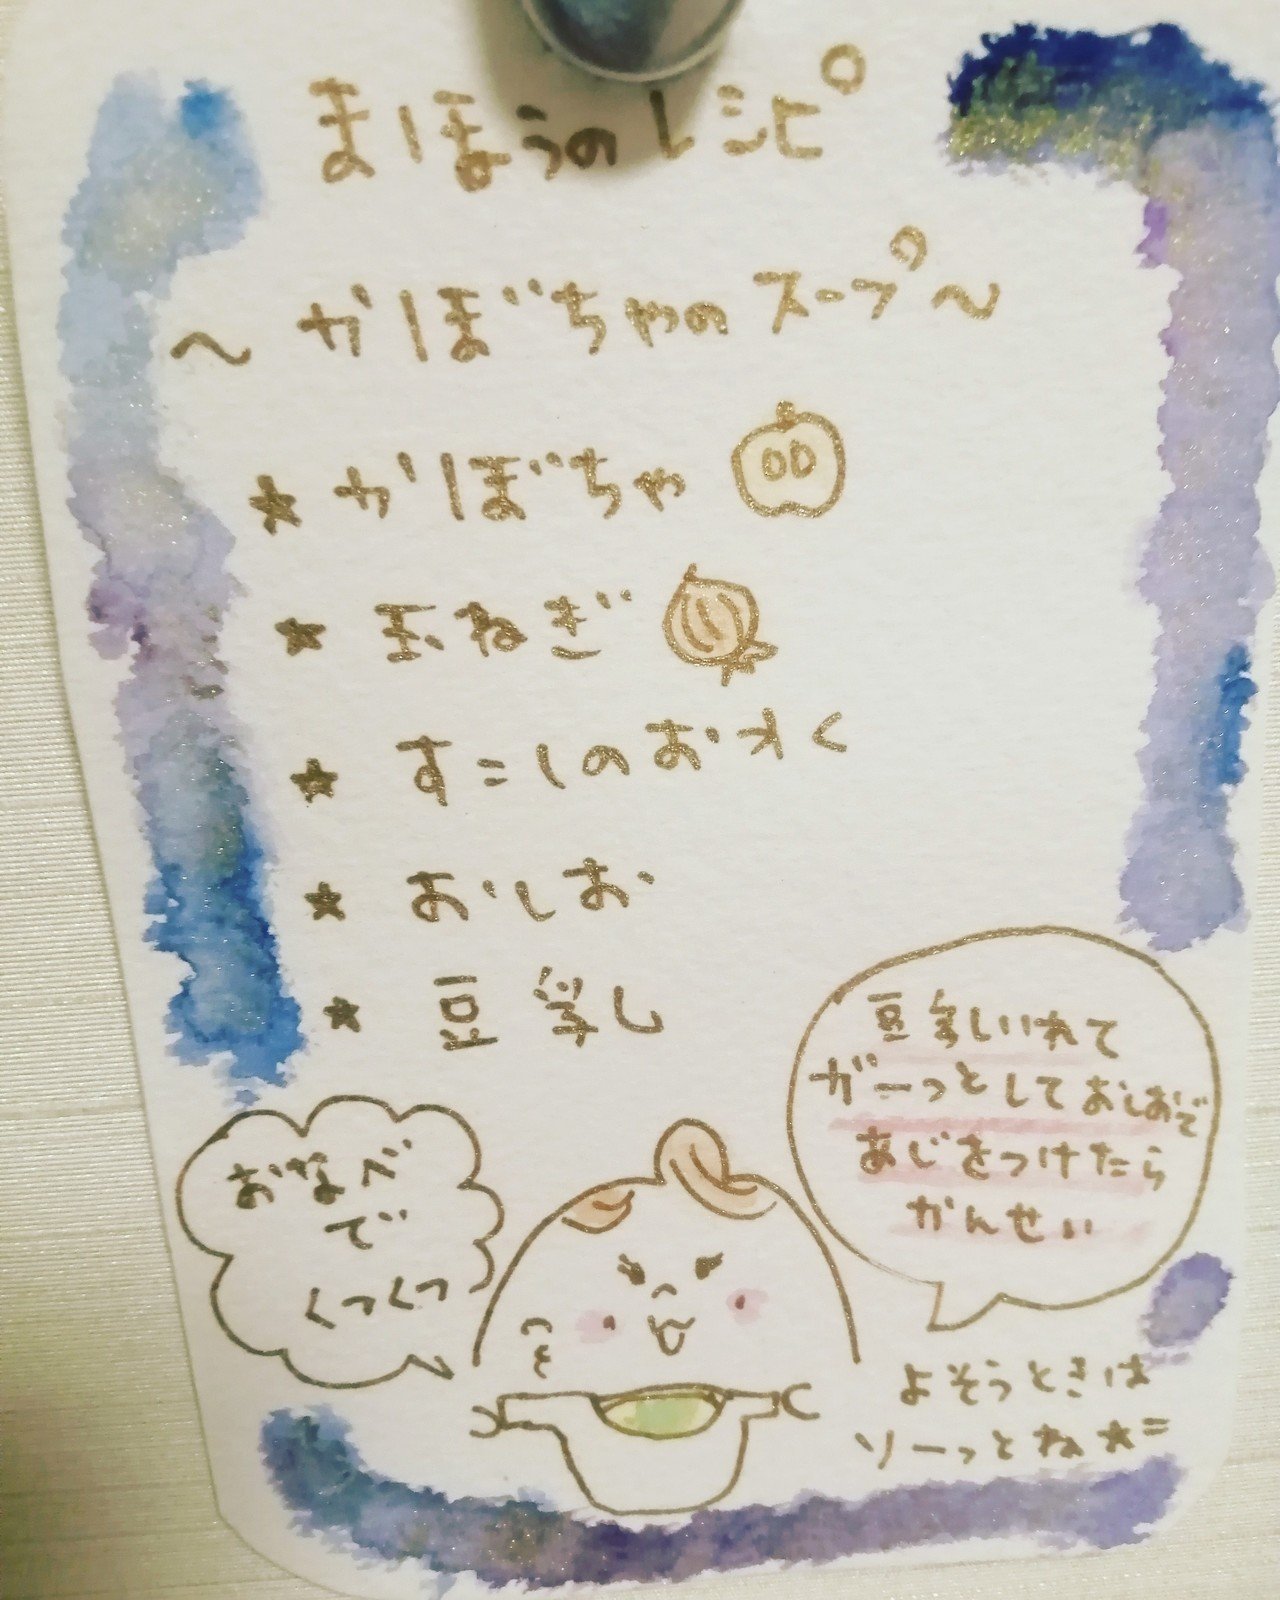 まほうのレシピ
～かぼちゃのスープ～
★かぼちゃ
★玉ねぎ
★すこしのおみく
★おしお
★豆乳
おなべ
で
くつくつ
豆乳いれて
ガーっとしておしおで
あじをつけたら
かんせい
よそうときは
ソーっとね★=